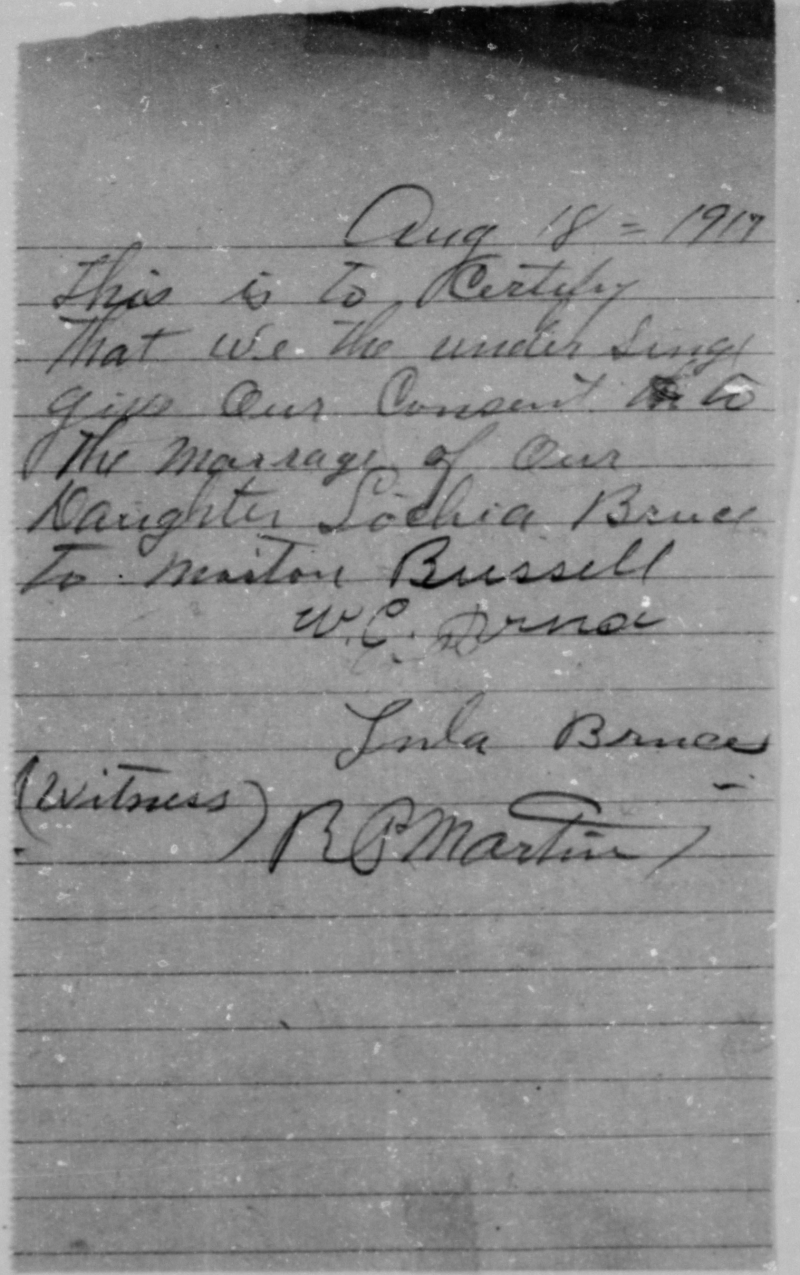 Aug 18 = 1917
This is to Certify
that we the under Singe
give Our Consent to
the marrage of Our
Daughter Lochia Bruce
to Marton Bussell
W. C.
Lula Bruce
(Witness)
R P Martin